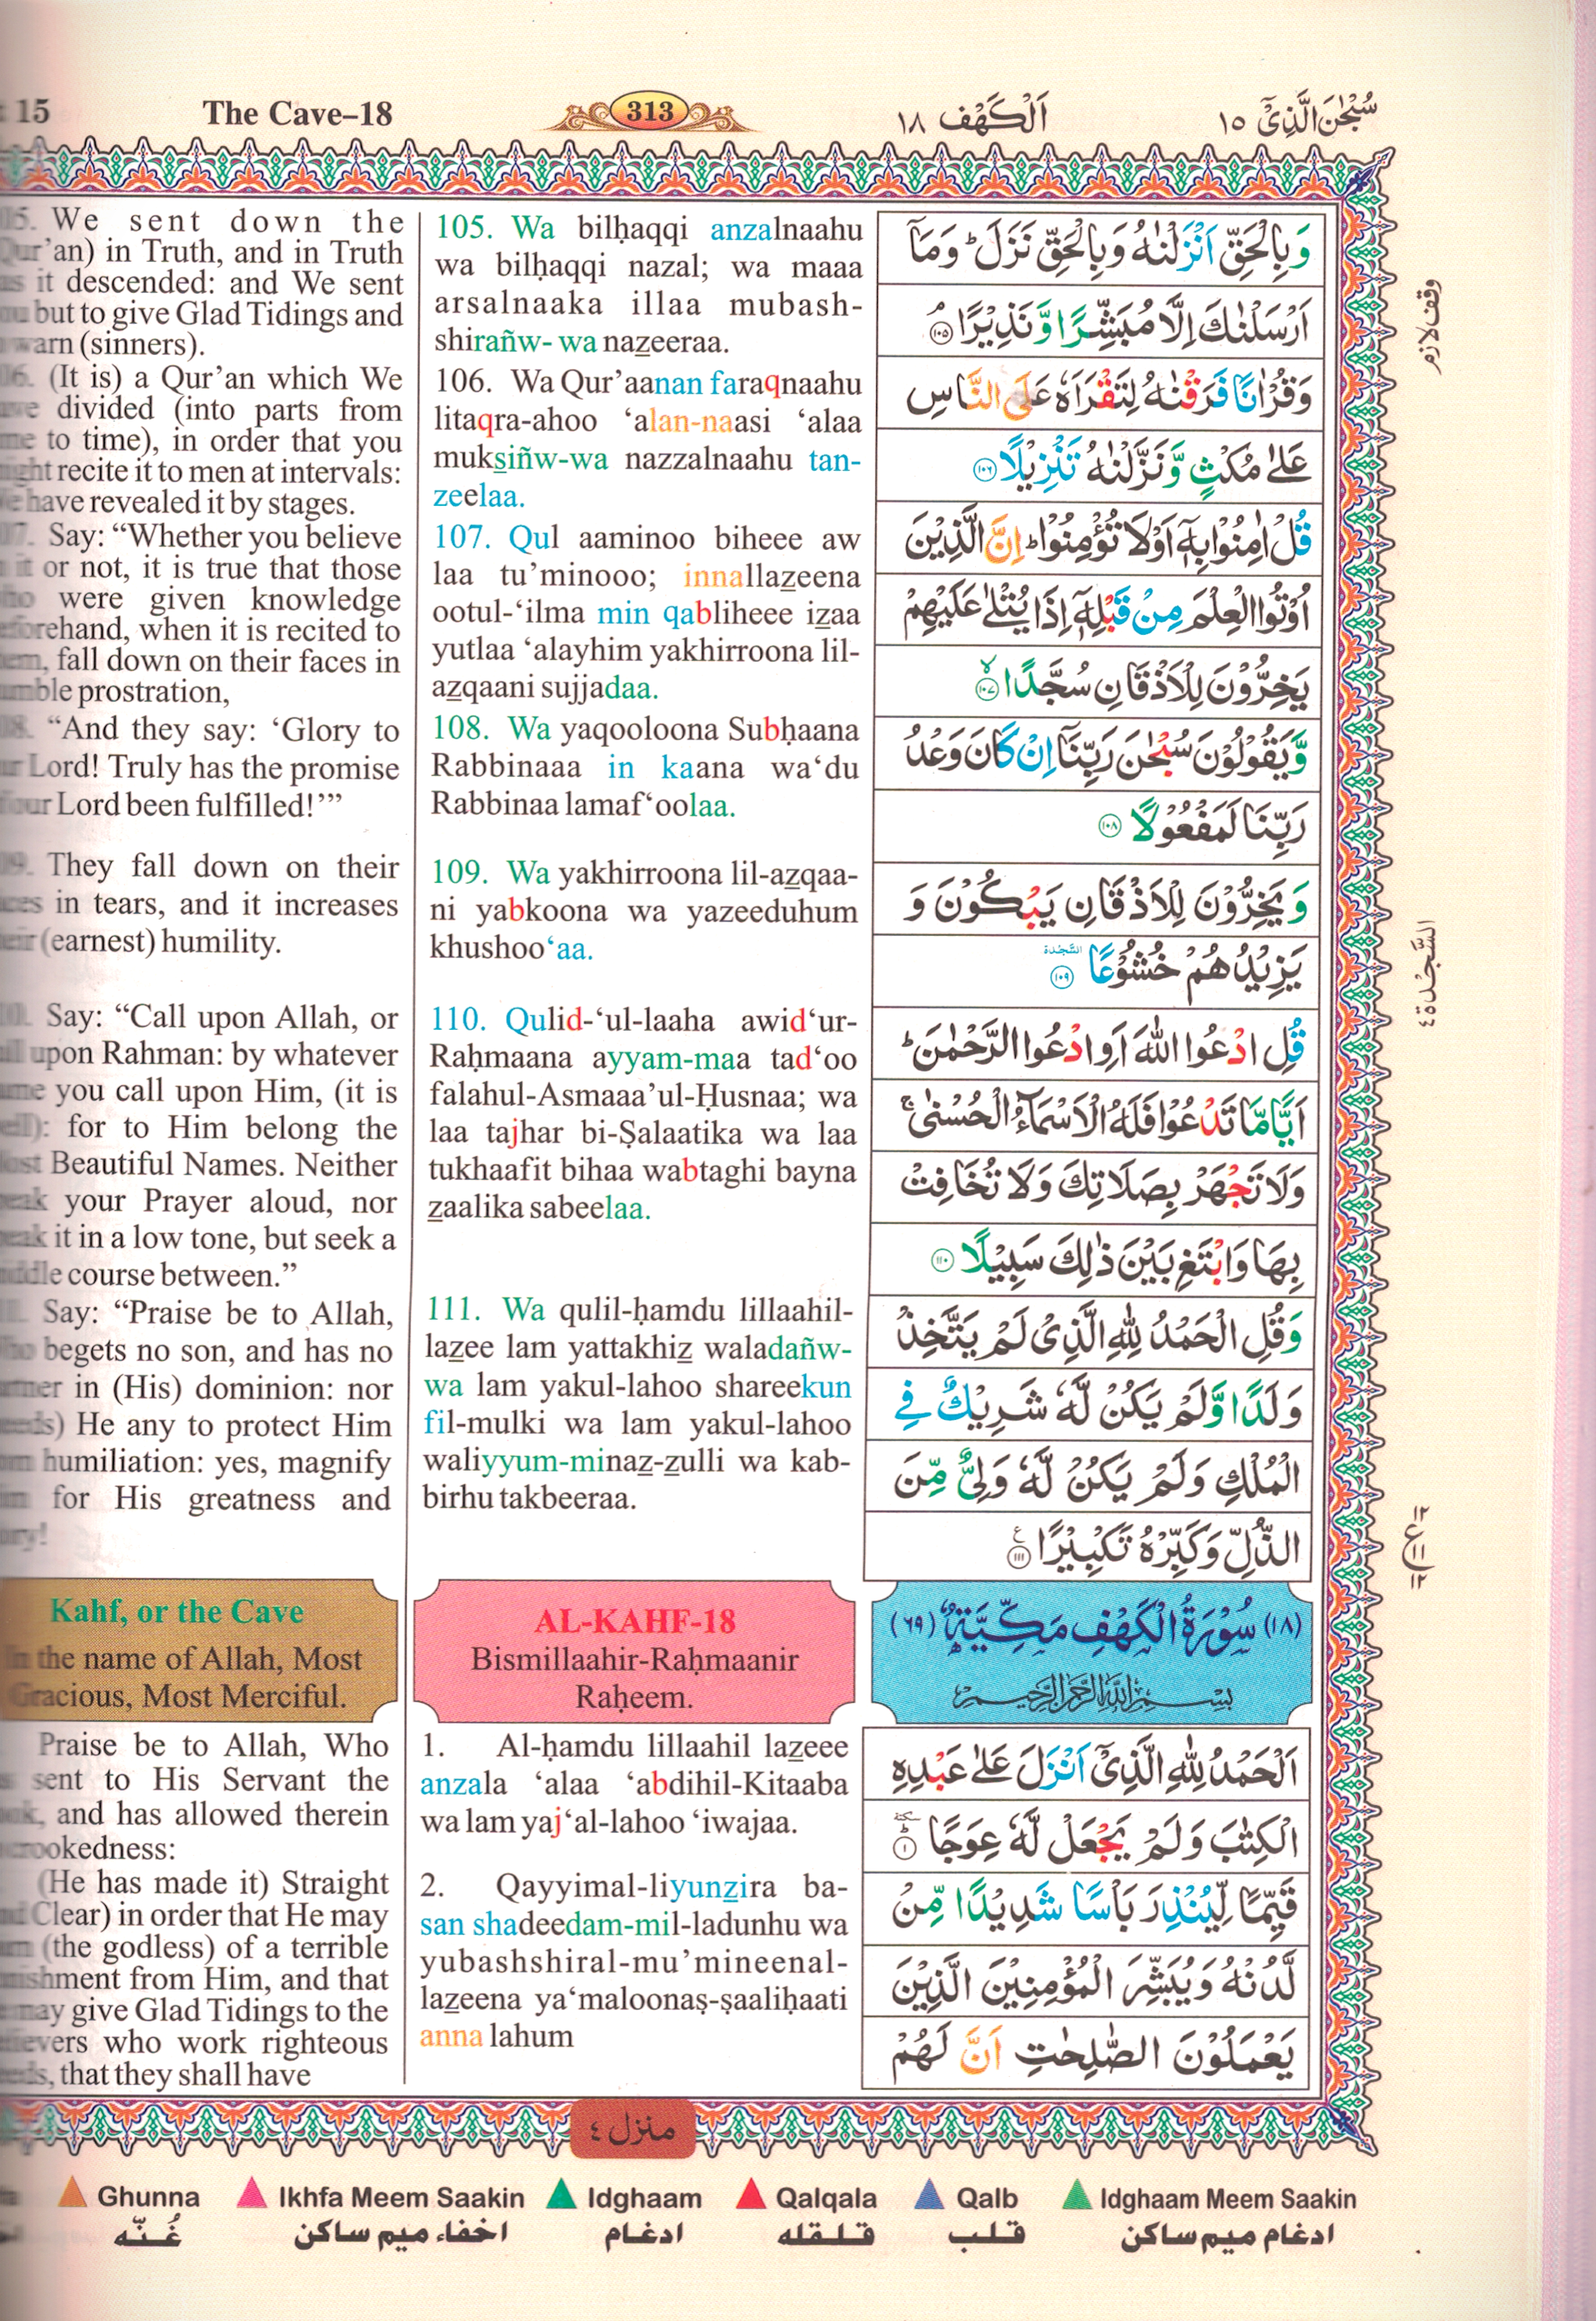 15 The Cave–18 313 اَلْكَهْف ١٨ سُبْحٰنَ الَّذِيْٓ ١٥
We sent down the
Qur’an) in Truth, and in Truth
it descended: and We sent
but to give Glad Tidings and
warn (sinners).
(It is) a Qur’an which We
divided (into parts from
to time), in order that you
recite it to men at intervals:
have revealed it by stages.
Say: “Whether you believe
it or not, it is true that those
were given knowledge
when it is recited to
fall down on their faces in
prostration,
“And they say: ‘Glory to
Lord! Truly has the promise
Lord been fulfilled!’”
They fall down on their
in tears, and it increases
(earnest) humility.
Say: “Call upon Allah, or
upon Rahman: by whatever
you call upon Him, (it is
for to Him belong the
Beautiful Names. Neither
your Prayer aloud, nor
it in a low tone, but seek a
course between.”
Say: “Praise be to Allah,
begets no son, and has no
in (His) dominion: nor
He any to protect Him
humiliation: yes, magnify
for His greatness and
Kahf, or the Cave
In the name of Allah, Most
Gracious, Most Merciful.
Praise be to Allah, Who
sent to His Servant the
and has allowed therein
crookedness:
(He has made it) Straight
Clear) in order that He may
(the godless) of a terrible
from Him, and that
may give Glad Tidings to the
who work righteous
that they shall have
105. Wa bilḥaqqi anzalnaahu
wa bilḥaqqi nazal; wa maaa
arsalnaaka illaa mubash-
shirañw- wa nazeeraa.
106. Wa Qur’aanan faraqnaahu
litaqra-ahoo ‘alan-naasi ‘alaa
muksiñw-wa nazzalnaahu tan-
zeelaa.
107. Qul aaminoo biheee aw
laa tu’minooo; innallazeena
ootul-‘ilma min qabliheee izaa
yutlaa ‘alayhim yakhirroona lil-
azqaani sujjadaa.
108. Wa yaqooloona Subḥaana
Rabbinaaa in kaana wa‘du
Rabbinaa lamaf‘oolaa.
109. Wa yakhirroona lil-azqaa-
ni yabkoona wa yazeeduhum
khushoo‘aa.
110. Qulid-‘ul-laaha awid‘ur-
Raḥmaana ayyam-maa tad‘oo
falahul-Asmaaa’ul-Ḥusnaa; wa
laa tajhar bi-Ṣalaatika wa laa
tukhaafit bihaa wabtaghi bayna
zaalika sabeelaa.
111. Wa qulil-ḥamdu lillaahil-
lazee lam yattakhiz waladañw-
wa lam yakul-lahoo shareekun
fil-mulki wa lam yakul-lahoo
waliyyum-minaz-zulli wa kab-
birhu takbeeraa.
AL-KAHF-18
Bismillaahir-Raḥmaanir
Raḥeem.
1. Al-ḥamdu lillaahil lazeee
anzala ‘alaa ‘abdihil-Kitaaba
wa lam yaj‘al-lahoo ‘iwajaa.
2. Qayyimal-liyunzira ba-
san shadeedam-mil-ladunhu wa
yubashshiral-mu’mineenal-
lazeena ya‘maloonaṣ-ṣaaliḥaati
anna lahum
وَبِالْحَقِّ اَنْزَلْنٰهُ وَبِالْحَقِّ نَزَلَ ؕ وَمَاۤ
اَرْسَلْنٰكَ اِلَّا مُبَشِّرًا وَّ نَذِيْرًا ۘ ١٠٥
وَقُرْاٰنًا فَرَقْنٰهُ لِتَقْرَاَهٗ عَلَى النَّاسِ
عَلٰى مُكْثٍ وَّ نَزَّلْنٰهُ تَنْزِيْلًا ١٠٦
قُلْ اٰمِنُوْا بِهٖۤ اَوْ لَا تُؤْمِنُوْا ؕ اِنَّ الَّذِيْنَ
اُوْتُوا الْعِلْمَ مِنْ قَبْلِهٖۤ اِذَا يُتْلٰى عَلَيْهِمْ
يَخِرُّوْنَ لِلْاَذْقَانِ سُجَّدًا ۙ ١٠٧
وَّ يَقُوْلُوْنَ سُبْحٰنَ رَبِّنَاۤ اِنْ كَانَ وَعْدُ
رَبِّنَا لَمَفْعُوْلًا ١٠٨
وَ يَخِرُّوْنَ لِلْاَذْقَانِ يَبْكُوْنَ وَ
يَزِيْدُهُمْ خُشُوْعًا السَّجْدَة ١٠٩
قُلِ ادْعُوا اللّٰهَ اَوِ ادْعُوا الرَّحْمٰنَ ؕ
اَيًّا مَّا تَدْعُوْا فَلَهُ الْاَسْمَآءُ الْحُسْنٰى ۚ
وَلَا تَجْهَرْ بِصَلَاتِكَ وَلَا تُخَافِتْ
بِهَا وَابْتَغِ بَيْنَ ذٰلِكَ سَبِيْلًا ١١٠
وَقُلِ الْحَمْدُ لِلّٰهِ الَّذِيْ لَمْ يَتَّخِذْ
وَلَدًا وَّ لَمْ يَكُنْ لَّهٗ شَرِيْكٌ فِي
الْمُلْكِ وَلَمْ يَكُنْ لَّهٗ وَلِيٌّ مِّنَ
الذُّلِّ وَكَبِّرْهُ تَكْبِيْرًا ع ١١١
(١٨) سُوْرَةُ الْكَهْفِ مَكِّيَّةٌ (٦٩)
بِسْمِ اللهِ الرَّحْمٰنِ الرَّحِيْمِ
اَلْحَمْدُ لِلّٰهِ الَّذِيْۤ اَنْزَلَ عَلٰى عَبْدِهِ
الْكِتٰبَ وَلَمْ يَجْعَلْ لَّهٗ عِوَجًا ؕ سكتة ١
قَيِّمًا لِّيُنْذِرَ بَاْسًا شَدِيْدًا مِّنْ
لَّدُنْهُ وَيُبَشِّرَ الْمُؤْمِنِيْنَ الَّذِيْنَ
يَعْمَلُوْنَ الصّٰلِحٰتِ اَنَّ لَهُمْ
وقف لازم
السَّجْدة ٤
ع
منزل ٤
Ghunna Ikhfa Meem Saakin Idghaam Qalqala Qalb Idghaam Meem Saakin
غُنّه اخفاء ميم ساكن ادغام قلقله قلب ادغام ميم ساكن